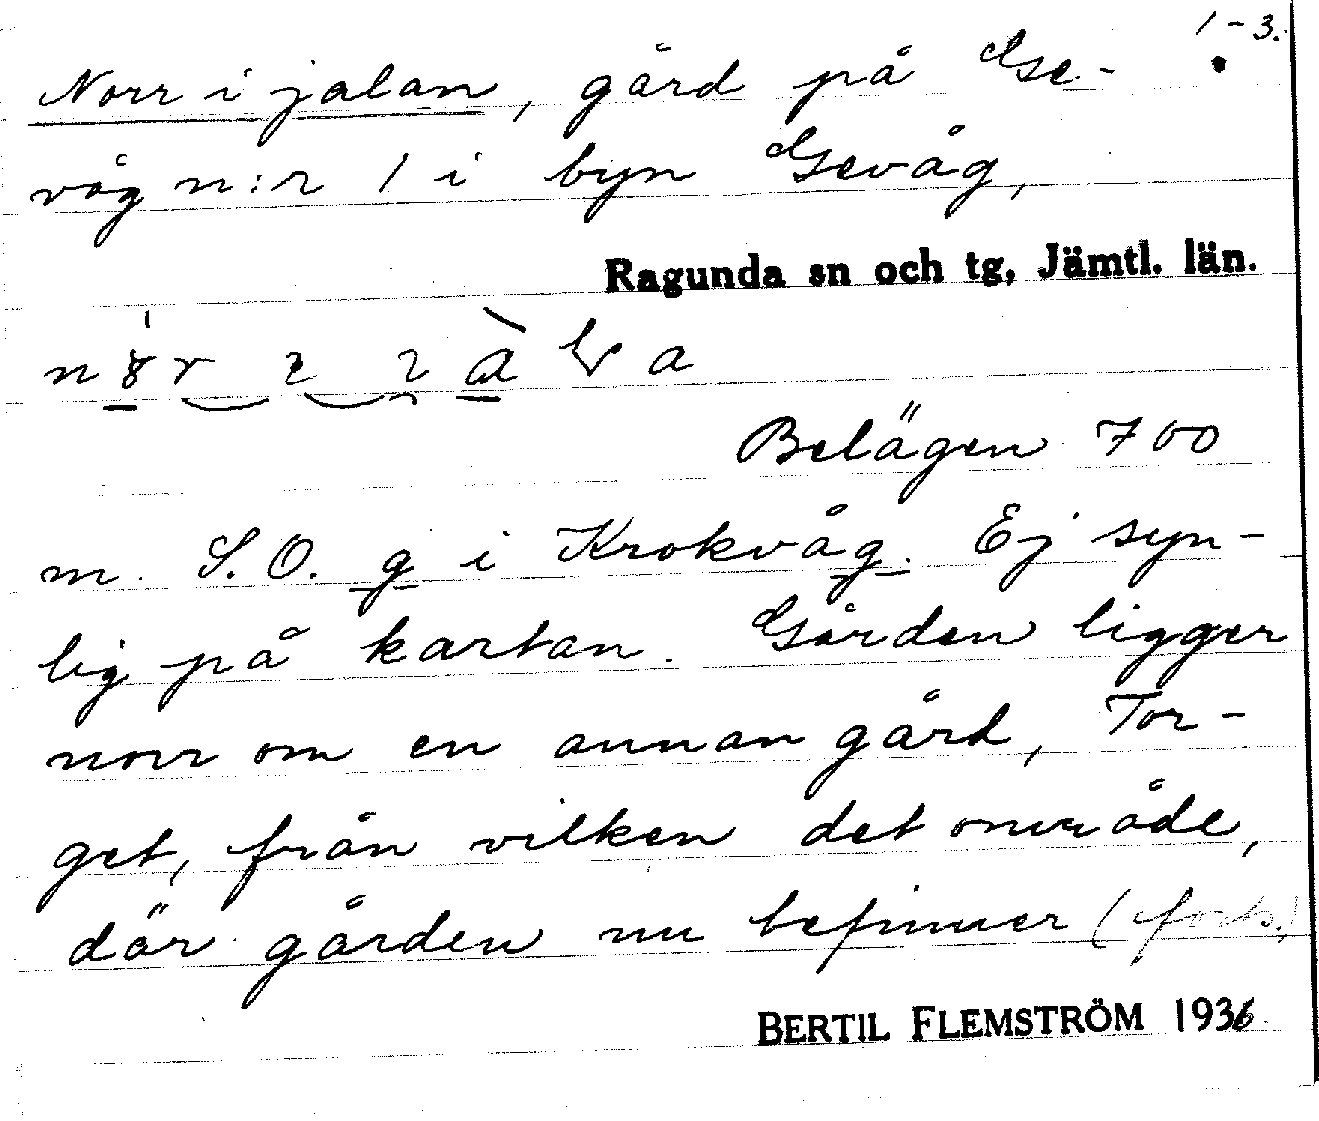 1-3.
Norr i jalan, gård på Ge-
våg n:r 1 i byn Gevåg,
Ragunda sn och tg, Jämtl. län.
Belägen 700
m. S.O. g i Krokvåg. Ej syn-
lig på kartan. Gården ligger
norr om en annan gård, Tor-
get, från vilken det område,
där gården nu befinner (forts.)
BERTIL FLEMSTRÖM 1936